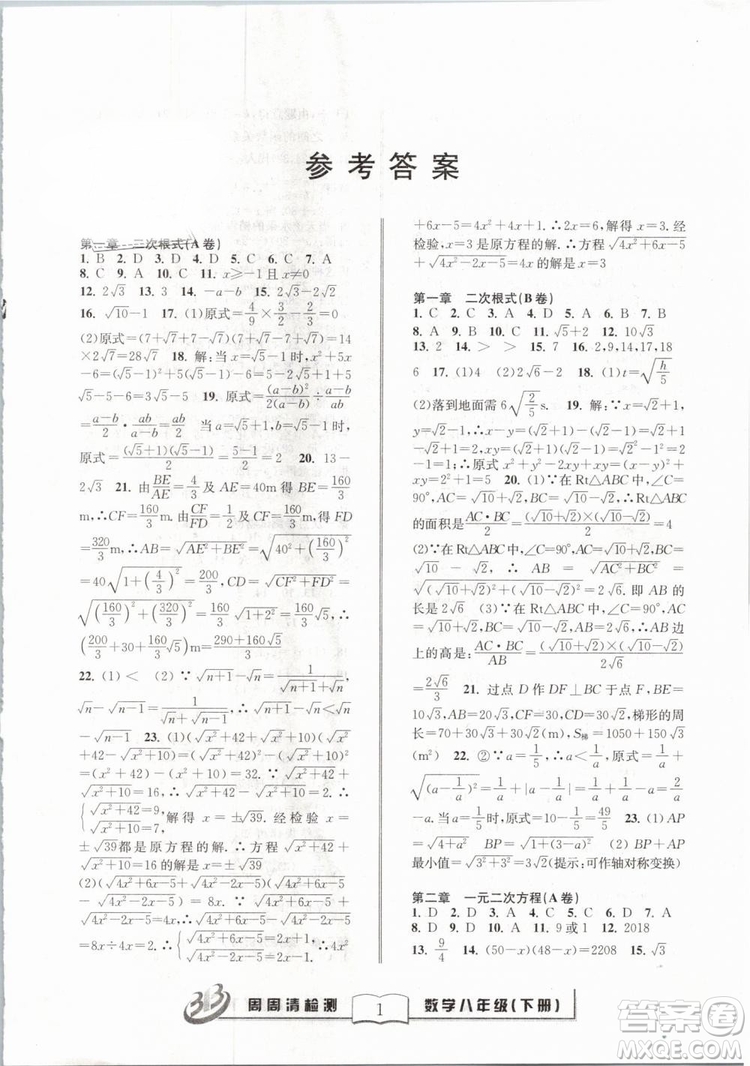 参考答案
第一章 二次根式(A卷)
1. B 2. D 3. D 4. D 5. C 6. C 7. A
8. C 9. A 10. C 11. x≥-1且x≠0
12. 2√3 13. 4 14. -a-b 15. 3√2-2√3
16. √10 17. (1)原式=√(4/9×3/2×2/3)=2/3
(2)原式=(7+√7+7-√7)(7+√7-7+√7)=14
×2√7=28√7 18. 解:当x=√5-1时,x²+
5x-6=(√5-1)²+5(√5-1)-6=5-2√5+1+
5√5-5-6=3√5-5 19. 原式=(a-b)²/2(a-b)÷(a-b)/ab
=(a-b)/2·ab/(a-b)=ab/2 当a=√5+1,b=√5-1时,
原式=(√5+1)(√5-1)/2=(5-1)/2=2 20. 13-
2√3 21. 由BE/AE=4/3及AE=40m得BE=
160/3m.∴CF=160/3m.由CF/FD=1/2及CF=160/3m得FD
=320/3m.∴AB=√(AE²+BE²)=√(40²+(160/3)²)
=40√(1+(4/3)²)=200/3,CD=√(CF²+FD²)=
√((160/3)²+(320/3)²)=160/3√(1+2²)=160/3√5.∴
(200/3+30+160/3√5)m=(290+160√5)/3m
22. (1)< (2)∵√(n+1)-√n=1/(√(n+1)+√n),
√n-√(n-1)=1/(√n+√(n-1)),∴√(n+1)-√n<√n
-√(n-1) 23. (1)(√(x²+42)+√(x²+10))
(√(x²+42)-√(x²+10))=(√(x²+42))²-
(√(x²+10))²=(x²+42)-(x²+10)=32
∵√(x²+42)+√(x²+10)=16,∴√(x²+42)-
√(x²+10)=32÷16=2.∴
{√(x²+42)=9,√(x²+10)=7.解得x=±√39.经检验x=
±√39都是原方程的解.∴方程√(x²+42)+
√(x²+10)=16的解是x=±√39
(2)(√(4x²+6x-5)+√(4x²-2x-5))
(√(4x²+6x-5)-√(4x²-2x-5))=
(√(4x²+6x-5))²-(√(4x²-2x-5))²=
(4x²+6x-5)-(4x²-2x-5)=8x.∵
√(4x²+6x-5)+√(4x²-2x-5)=4x,∴
√(4x²+6x-5)-√(4x²-2x-5)
=8x÷4x=2.∴{√(4x²+6x-5)=2x+1,√(4x²-2x-5)=2x-1.∵4x²
+6x-5=4x²+4x+1.∴2x=6,解得x=3.经
检验,x=3是原方程的解.∴方程√(4x²+6x-5)
+√(4x²-2x-5)=4x的解是x=3
第一章 二次根式(B卷)
1. C 2. C 3. A 4. C 5. A 6. B 7. B
8. A 9. B 10. C 11. √5+√2 12. 10√3
13. 2 14. > > 15. 7 16. 2,9,14,17,18
6 17. (1)4 (2)√2-1 18. (1)t=√(h/5)
(2)落到地面需6√(2/5)s. 19. 解:∵x=√2+1,
y=√2-1,∴x-y=(√2+1)-(√2-1)=√2+1
-√2+1=2,xy=(√2+1)(√2-1)=(√2)²
-1=1;∴原式=x²+y²-2xy+xy=(x-y)²+
xy=2²+1=5 20. (1)∵在Rt△ABC中,∠C=
90°,AC=√10+√2,BC=√10-√2,∴Rt△ABC
的面积是AC·BC/2=(√10+√2)(√10-√2)/2=4
(2)∵在Rt△ABC中,∠C=90°,AC=√10+√2,
BC=√10-√2,∴AB=√(AC²+BC²)=
√((√10+√2)²+(√10-√2)²)=2√6.即AB的
长是2√6 (3)∵在Rt△ABC中,∠C=90°,AC=
√10+√2,BC=√10-√2,AB=2√6,∴斜边AB
上的高是:AC·BC/AB=(√10+√2)(√10-√2)/2√6
=2√6/3 21. 过点D作DF⊥BC于点F,BE=
10√3,AB=30√2,CF=30,CD=10√13,梯形的周
长=70+10√3+30√2(m),S梯=1050+150√3
(m²) 22. ②∵a=1/5,∴1/a=5,∴原式=1/a+
√((a-1/a)²)=1/a+|a-1/a|,∵a<1/a,∴原式=2/a
-a.当a=1/5时,原式=10-1/5=49/5 23. (1)AP
=√(4+9)=√13,BP=√(1+1)=√2 (2)BP+AP
最小值=√(3²+3²)=3√2(提示:可作轴对称变换)
第二章 一元二次方程(A卷)
1. D 2. D 3. A 4. C 5. C 6. D 7. A
8. D 9. C 10. A 11. 9或1 12. 2018
13. 9/4 14. (50-x)(48-x)=2208 15. √3
3B 周周清检测 1 数学八年级(下册)
答案圈
MXQE.COM